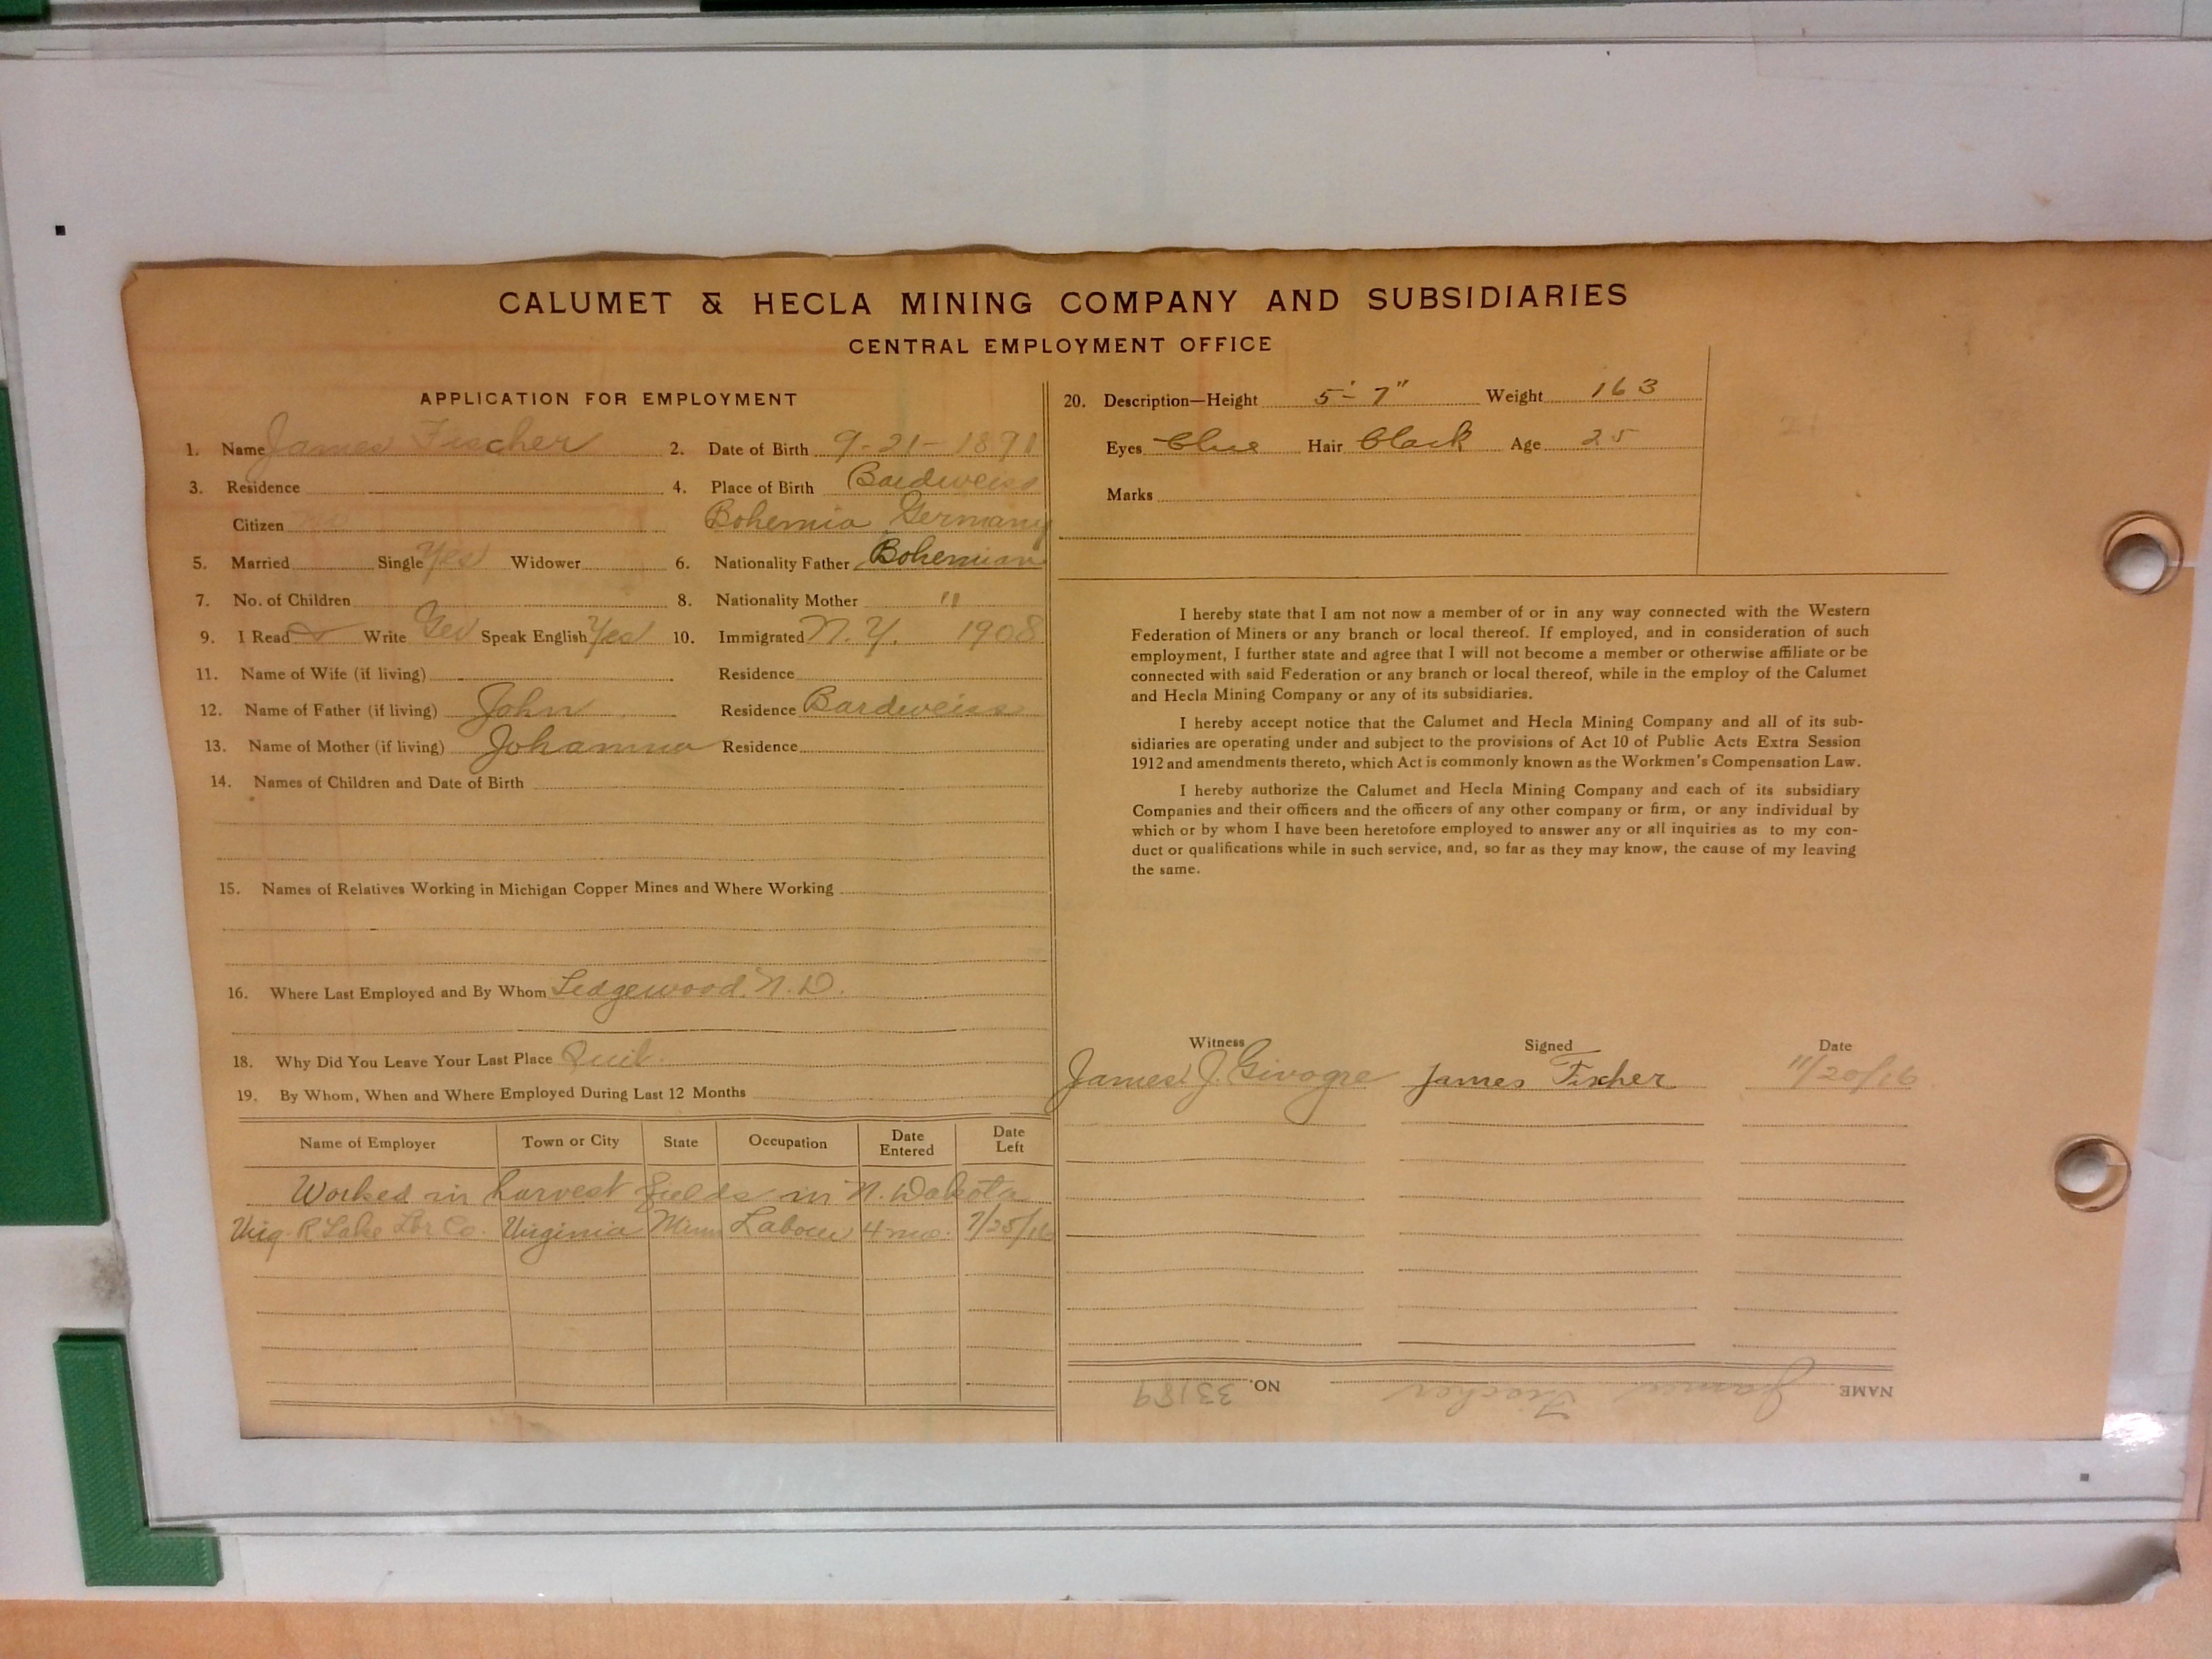 CALUMET & HECLA MINING COMPANY AND SUBSIDIARIES
CENTRAL EMPLOYMENT OFFICE
APPLICATION FOR EMPLOYMENT
1. Name James Fischer 2. Date of Birth 9-21-1891
3. Residence 4. Place of Birth Bardweiss
Citizen Bohemia Germany
5. Married Single Yes Widower 6. Nationality Father Bohemian
7. No. of Children 8. Nationality Mother "
9. I Read Write Ger Speak English Yes 10. Immigrated N.Y. 1908
11. Name of Wife (if living) Residence
12. Name of Father (if living) John Residence Bardweiss
13. Name of Mother (if living) Johanna Residence
14. Names of Children and Date of Birth
15. Names of Relatives Working in Michigan Copper Mines and Where Working
16. Where Last Employed and By Whom Sedgewood. N.D.
18. Why Did You Leave Your Last Place Quit.
19. By Whom, When and Where Employed During Last 12 Months
Name of Employer Town or City State Occupation Date Entered Date Left
Worked in harvest fields in N. Dakota
Virg. R Lake Lbr Co. Virginia Minn Labour 4 mo. 7/25/16
20. Description—Height 5'-7" Weight 163
Eyes blue Hair black Age 25
Marks
I hereby state that I am not now a member of or in any way connected with the Western
Federation of Miners or any branch or local thereof. If employed, and in consideration of such
employment, I further state and agree that I will not become a member or otherwise affiliate or be
connected with said Federation or any branch or local thereof, while in the employ of the Calumet
and Hecla Mining Company or any of its subsidiaries.
I hereby accept notice that the Calumet and Hecla Mining Company and all of its sub-
sidiaries are operating under and subject to the provisions of Act 10 of Public Acts Extra Session
1912 and amendments thereto, which Act is commonly known as the Workmen's Compensation Law.
I hereby authorize the Calumet and Hecla Mining Company and each of its subsidiary
Companies and their officers and the officers of any other company or firm, or any individual by
which or by whom I have been heretofore employed to answer any or all inquiries as to my con-
duct or qualifications while in such service, and, so far as they may know, the cause of my leaving
the same.
Witness Signed Date
James J. Givogre James Fischer 11/20/16
NAME James Fischer NO. 33189